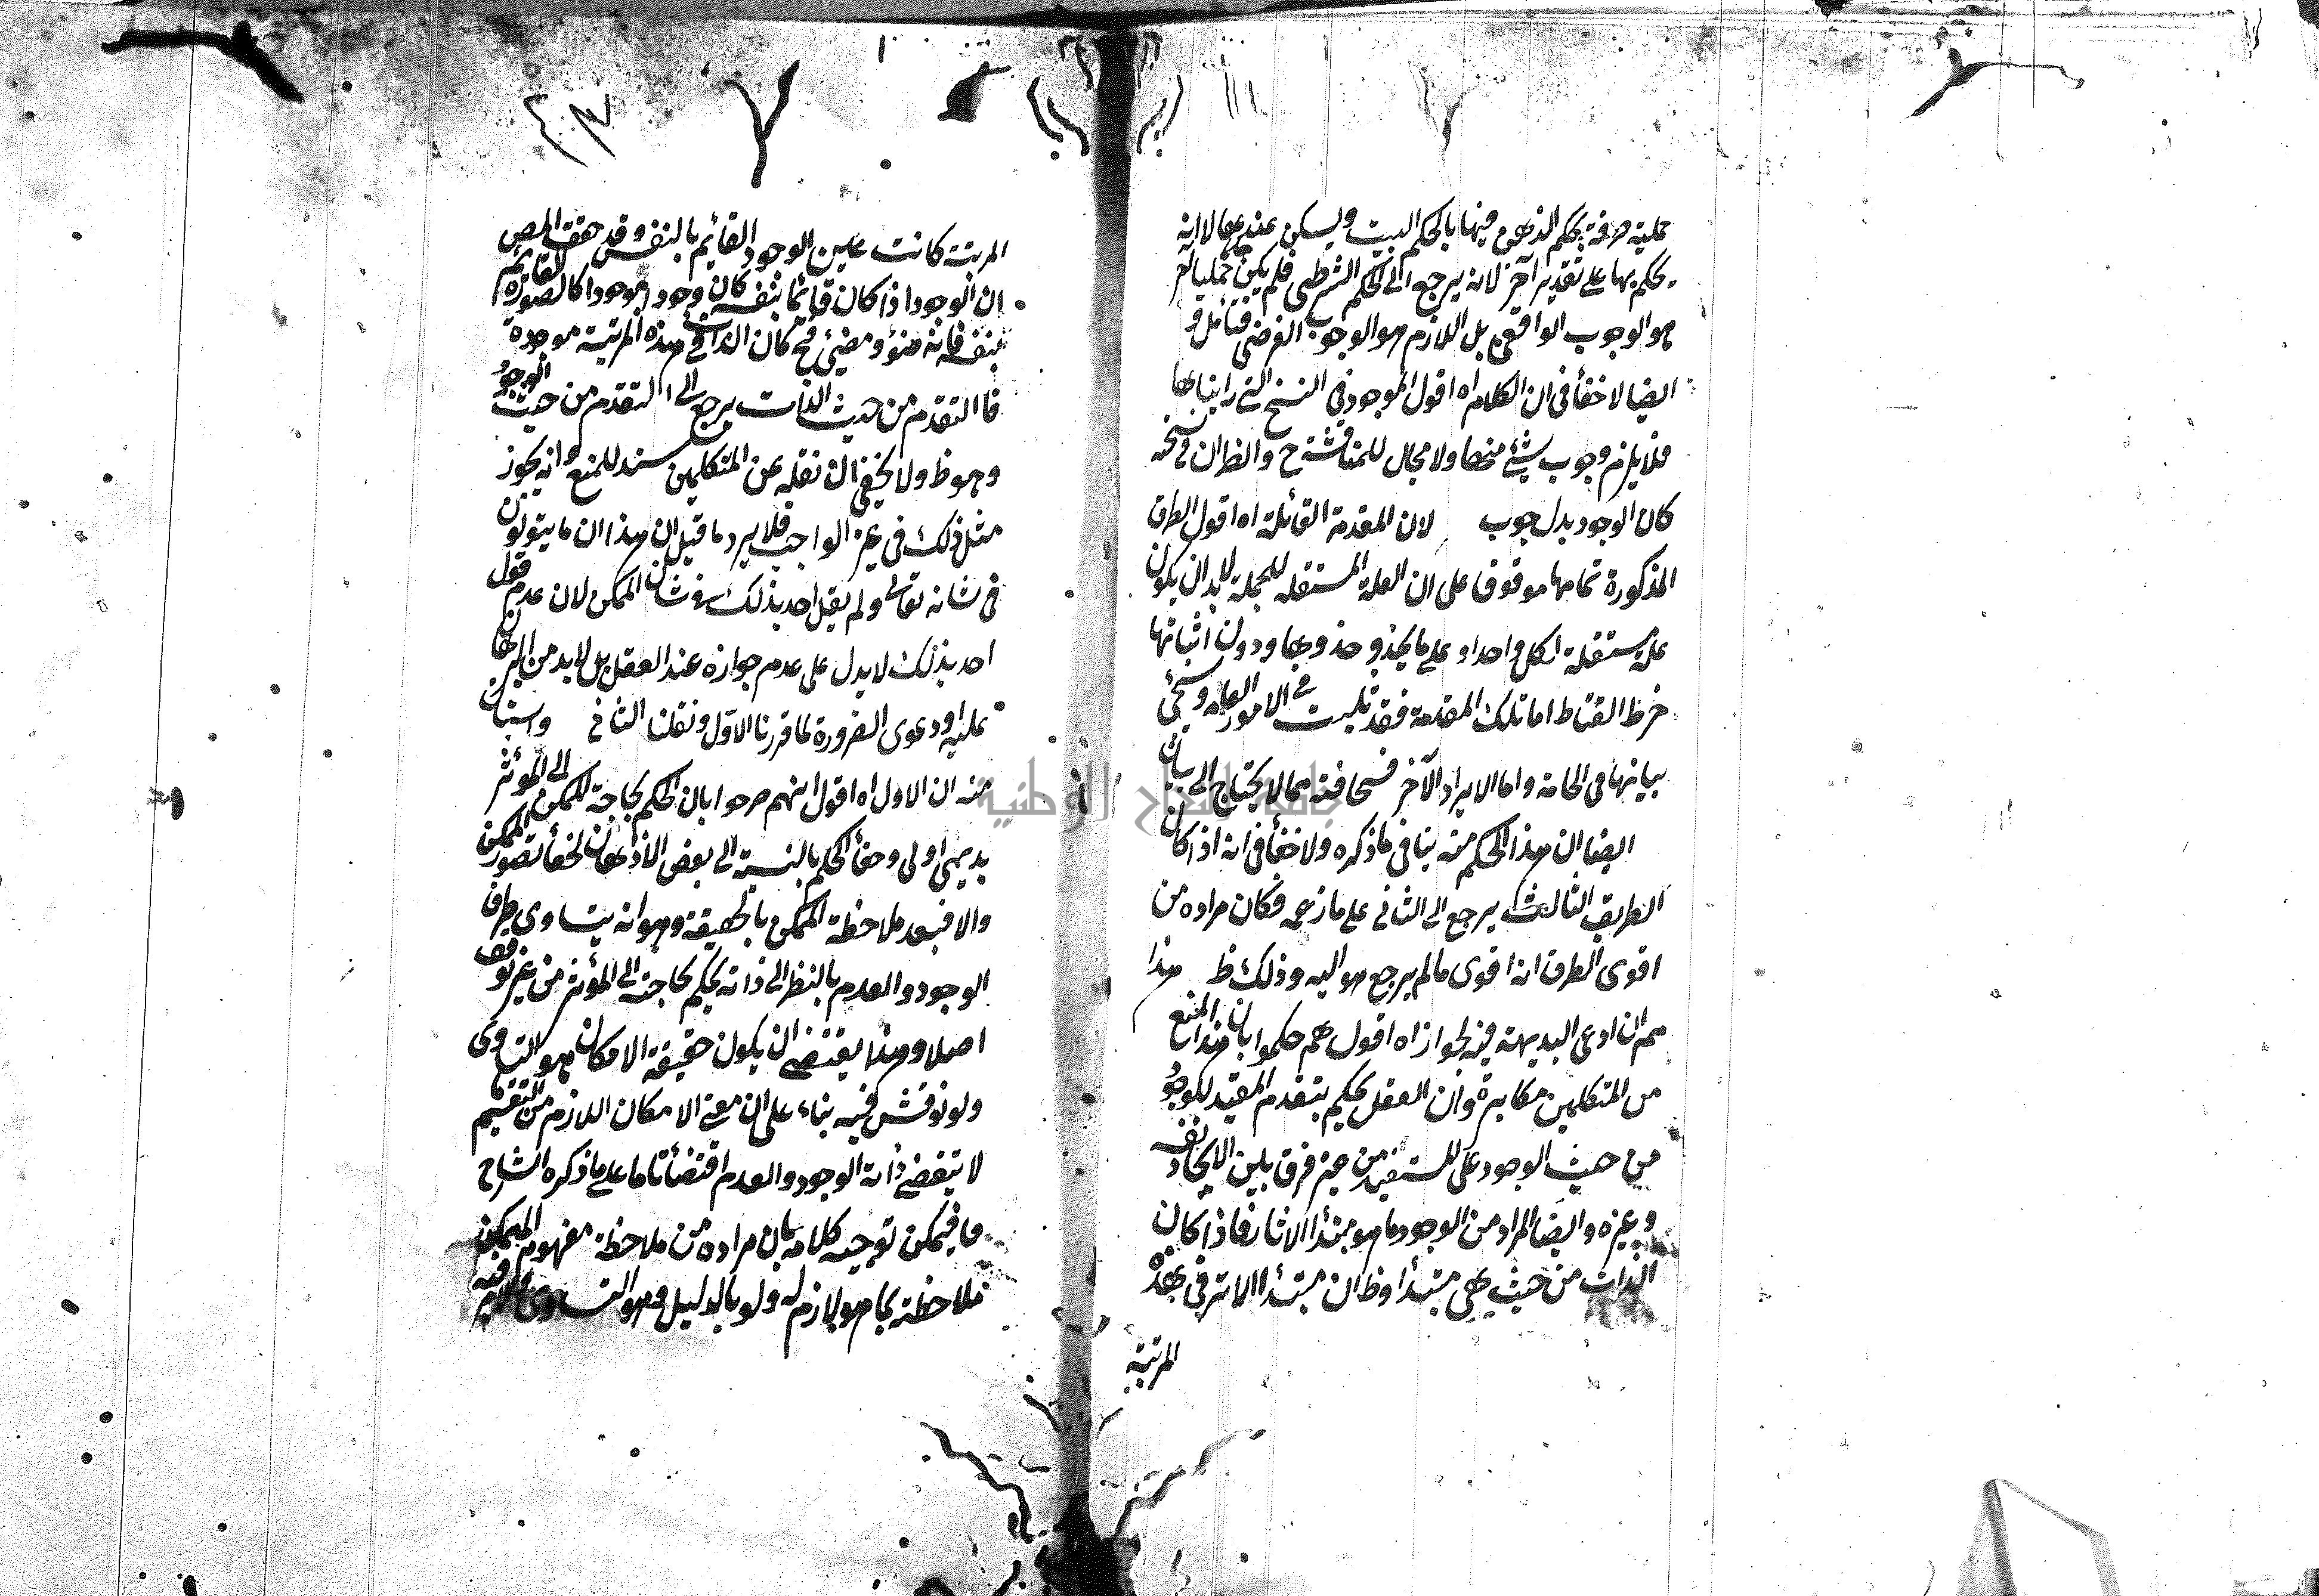 حملية صرفة بحكم الذهن فيها بالحكم البت ويسكن عندها لا انه
يحكم بها على تقدير آخر لانه يرجع الى الحكم الشرطي فلم يكن حمليا
هو الوجوب الواقعي بل اللازم هو الوجوب الفرضي فتأمل و
ايضا لا خفأ في ان الكلام اه اقول الموجود في النسخ التي رايناها
فلا يلزم وجوب شئ منها ولا مجال للمناقشة ح والظ ان في نسخة
كان الوجود بدل جوب لان المقدمة القائلة اه اقول الطرق
المذكورة تمامها موقوف على ان العلة المستقلة للجملة لابد ان يكون
علة مستقلة لكل واحد او على ما يحذو حذوها ودون اثباتها
خرط القتاط اما تلك المقدمة فقد ثبتت في الامور العامة وسيجئ
بيانها في الخاتمة واما الايراد الآخر فسخافته مما لا يحتاج الى بيان
ايضا ان هذا الحكم منه ينافي ما ذكره ولا خفأ في انه اذا كان
الطريق الثالث يرجع الى الثاني على ما زعمه فكان مراده من
اقوى الطرق انه اقوى ما لم يرجع هو اليه وذلك ظ هذا
هم ان ادعى البديهة فيه لجواز اه اقول هم حكموا بان هذا المنع
من المتكلمين مكابرة وان العقل يحكم بتقدم المفيد للوجود
من حيث الوجود على المستفيد من غير فرق بين الايجاد نفسه
وغيره وايضا المراد من الوجود ما هو مبتدأ الاثار فاذا كان
الذات من حيث هي مبتدأ وظ ان مبتدأ الاثر في هذه
المرتبة
المرتبة كانت عين الوجود القائم بالنفس وقد حقق المص
ان الوجود اذا كان قائما بنفسه كان وجودا وموجودا كالضوء القائم
بنفسه فانه ضوء ومضئ فح كان الذات في هذه المرتبة موجودة
فالتقدم من حيث الذات يرجع الى التقدم من حيث الوجود
وهو ظ ولا يخفى ان نقله عن المتكلمين سند للمنع وانه يجوز
مثل ذلك في غير الواجب فلا يرد ما قيل ان هذا ان ما يتولون
في شانه تعالى ولم يقل احد بذلك في شان الممكن لان عدم قول
احد بذلك لا يدل على عدم جوازه عند العقل بل لابد من البرهان
عليه او دعوى الضرورة لما قررنا الاول ونقلنا الثاني واستبان
منه ان الاول اه اقول انهم صرحوا بان الحكم بحاجة الممكن الى المؤثر
بديهي اولي وخفأ الحكم بالنسبة الى بعض الاذهان لخفأ تصور الممكن
والا فبعد ملاحظة الممكن بالحقيقة وهو انه يتساوى طرفا
الوجود والعدم بالنظر الى ذاته يحكم بحاجته الى المؤثر من غير توقف
اصلا وهذا يقتضي ان يكون حقيقة الامكان هو التساوي
ولو نوقش فيه بناء على ان معنى الامكان اللازم من التقسيم
لا يقتضي ذاته الوجود والعدم اقتضأ تاما على ما ذكره الشارح
فيمكن توجيه كلامه بان مراده من ملاحظة مفهوم الممكن
ملاحظة بما هو لازم له ولو بالدليل وهو التساوي
جامعة النجاح الوطنية